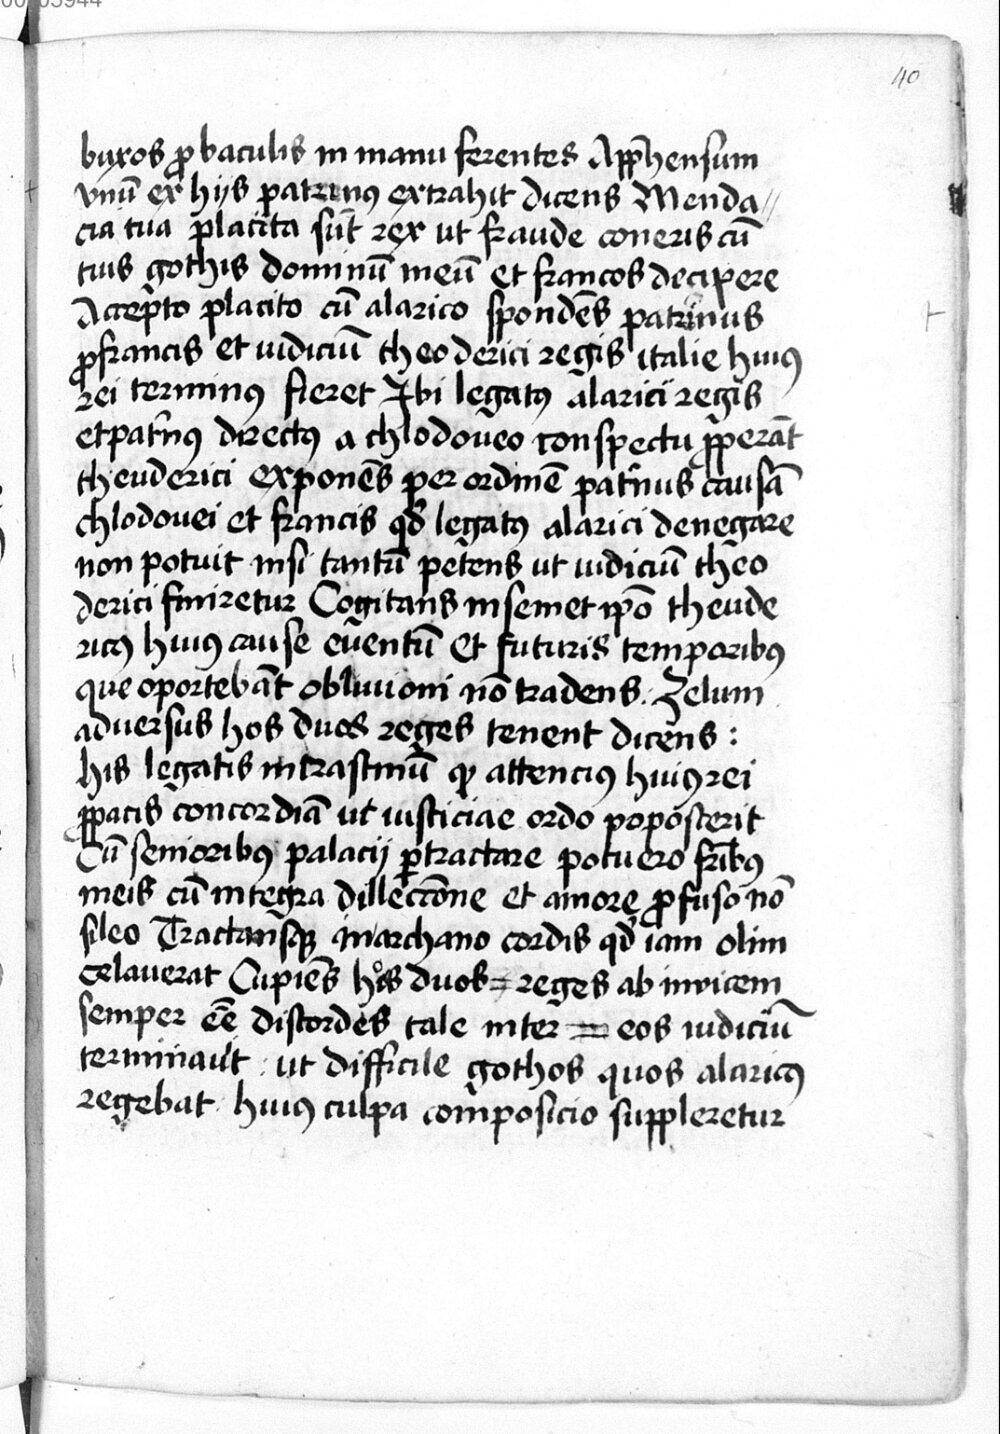 40
buxos ꝓ baculis in manu ferentes App̄hensum
vnū ex hijs paternus extrahit dicens Menda//
cia tua placita sūt rex ut fraude coneris cū
tuis gothis dominū meū et francos decipere
Accepto placito cū alarico spondēs paternus
ꝓ francis et iudiciū theoderici regis italie huiꝰ
rei terminꝰ fieret Ibi legatꝰ alarici regis
et pat̄nꝰ directꝰ a chlodoveo conspectu ꝓperāt
theuderici exponēs per ordinē pat̄nus causā
chlodovei et francis qd̄ legatꝰ alarici denegare
non potuit nisi tantū petens ut iudiciū theo
derici finiretur Cogitans in semet ip̄o theude
ricꝰ huiꝰ cause eventū et futuris temporibꝰ
que oportebāt oblivioni nō tradens. Zelum
adversus hos duos reges tenent dicens :
his legatis in crastinū qͥ attenciꝰ huiꝰ rei
ꝓ pacis concordiā ut iusticiae ordo poposcerit
Cū senioribꝰ palacij ꝑtractare potuero fr̄ibꝰ
meis cū integra dillectōne et amore ꝓfuso nō
sileo Tractansqꝫ in archano cordis qd̄ iam olim
celaverat Cupiēs hos duos reges ab invicem
semper eē discordes tale inter eos iudiciū
terminavit : ut difficile gothos quos alaricꝰ
regebat. huiꝰ culpa composicio suppleretur